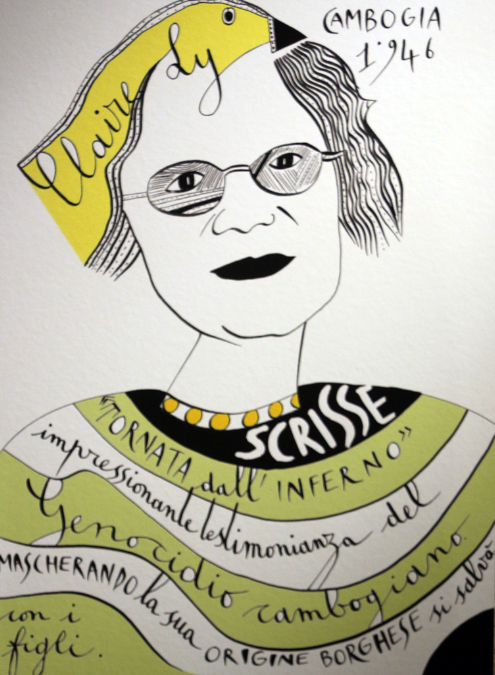 Claire Ly
CAMBOGIA
1946
SCRISSE
"TORNATA dall' INFERNO"
impressionante testimonianza del
Genocidio cambogiano.
MASCHERANDO la sua ORIGINE BORGHESE si salvò
con i
figli.